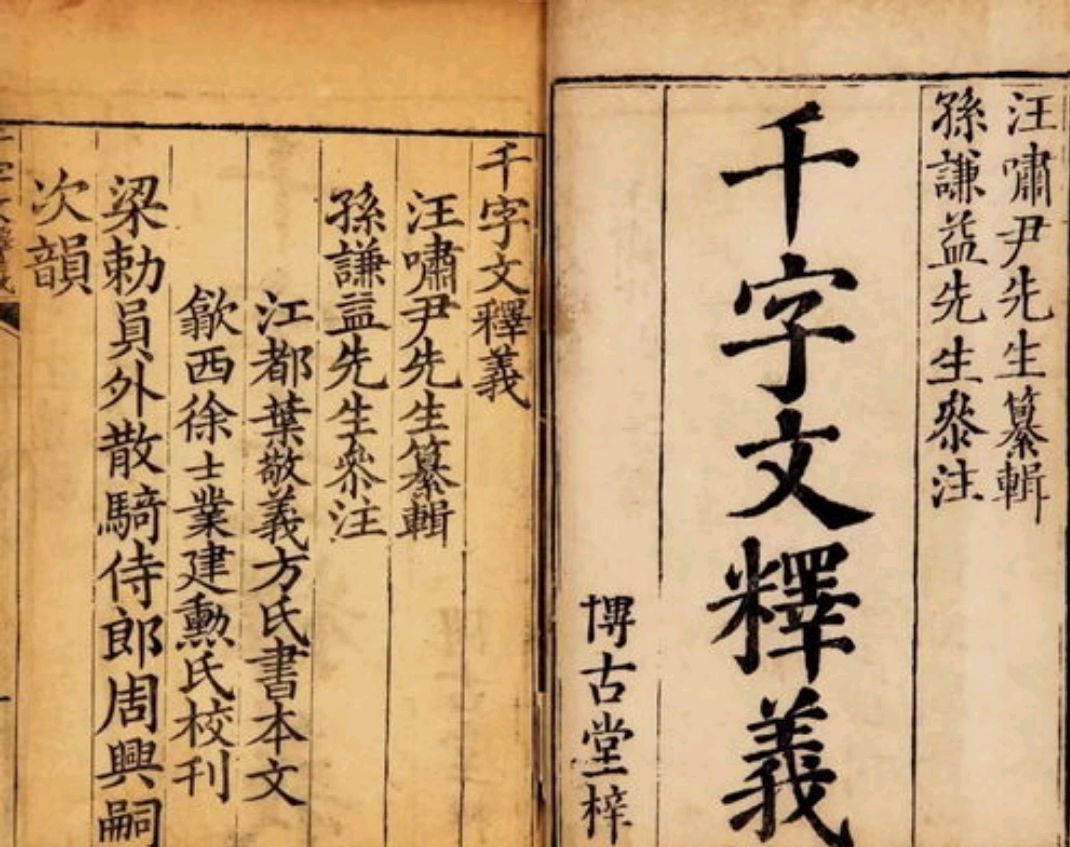 汪嘯尹先生纂輯
孫謙益先生叅注
千字文釋義
博古堂梓
千字文釋義
汪嘯尹先生纂輯
孫謙益先生叅注
江都葉敬義方氏書本文
歙西徐士業建勲氏校刊
梁勅員外散騎侍郎周興嗣
次韻